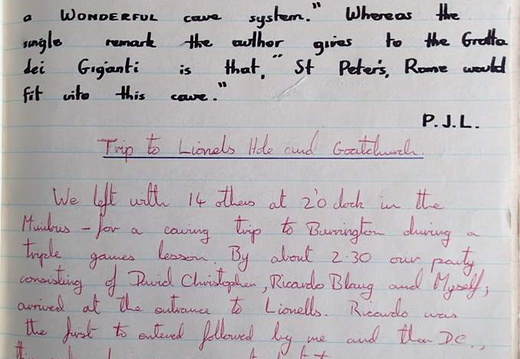 a WONDERFUL cave system." Whereas the
single remark the author gives to the Grotta
dei Giganti is that, "St Peter's, Rome would
fit into this cave."
P.J.L.
Trip to Lionels Hole and Goatchurch.
We left with 14 others at 2 o'clock in the
Minibus - for a caving trip to Burrington during a
triple games lesson. By about 2.30 our party
consisting of David Christopher, Ricardo Blaug and Myself;
arrived at the entrance to Lionells. Ricardo was
the first to entered followed by me and then D.C.,